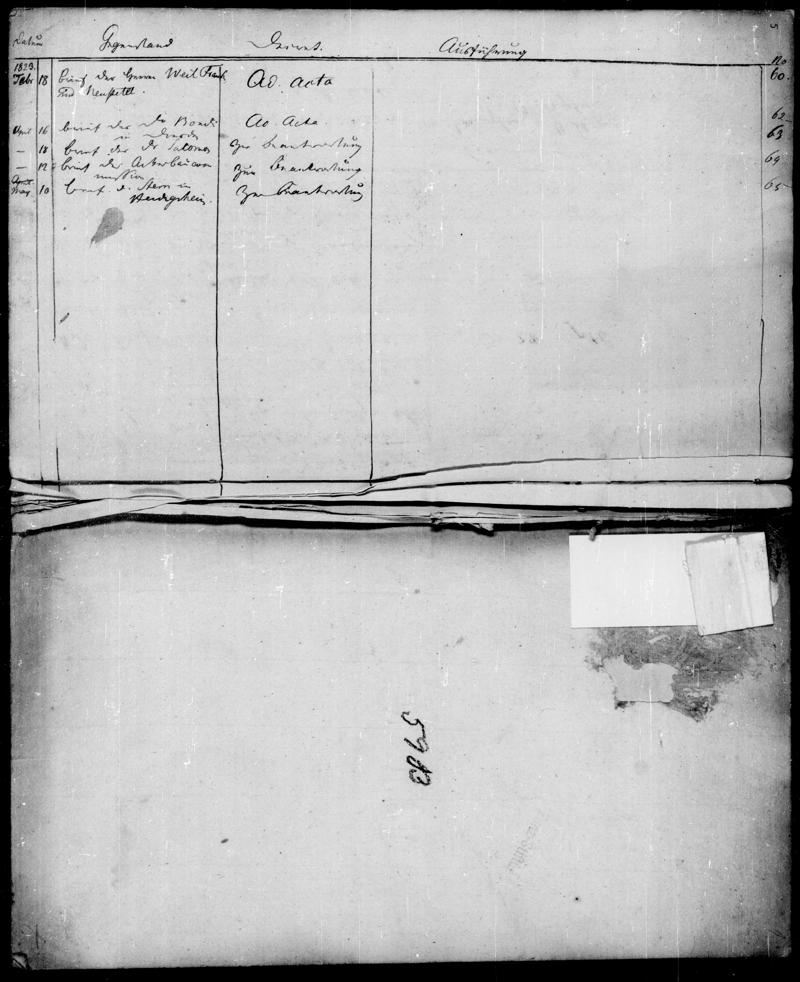 5
Datum Gegenstand Decret. Ausführung No
1823.
Febr 18 brief der Herrn Weil Frank Ad. acta 60.
und Neustetel.
62
April 16 brief des Dr Bondi Ad. Acta. 63
in Dresden
— 18 brief des Dr Salomon zur Beantwortung
— 12 brief der Ackerbau com zur Beantwortung 64
mission
April
May 10 brief d. Stern in zur Beantwortung 65